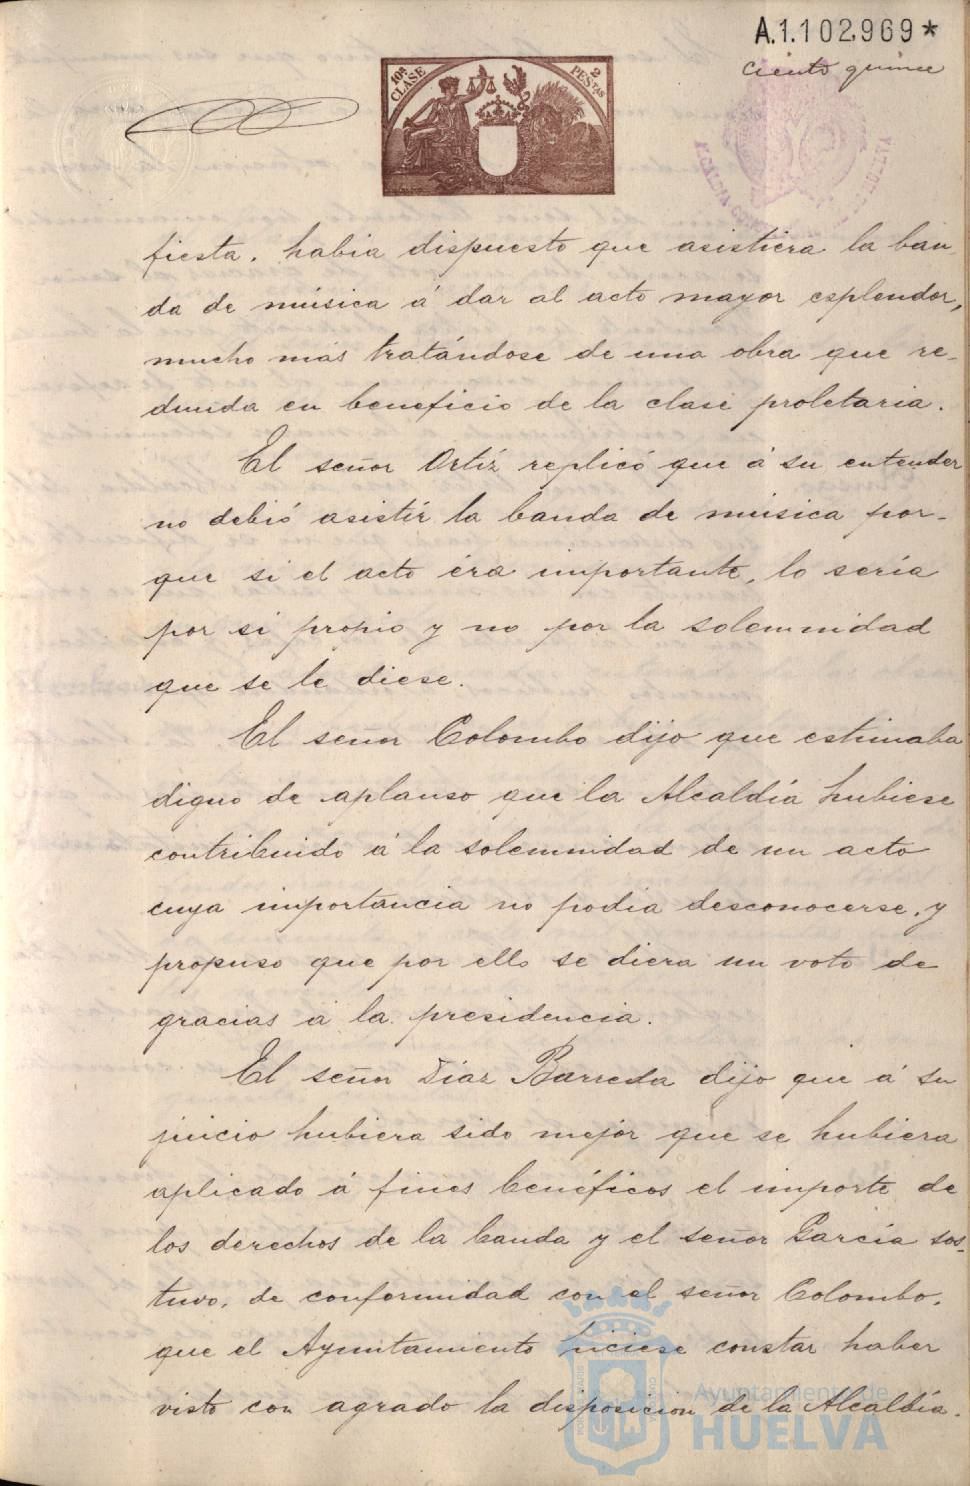 A.1.102.969*
Ciento quince
10ª CLASE
2 PESTAS
ALCALDIA HUELVA
fiesta, habia dispuesto que asistiera la ban
da de música á dar al acto mayor esplendor,
mucho más tratándose de una obra que re-
dunda en beneficio de la clase proletaria.
El señor Ortíz replicó que á su entender
no debió asistir la banda de música por-
que si el acto era importante, lo sería
por si propio y no por la solemnidad
que se le diese.
El señor Colombo dijo que estimaba
digno de aplauso que la Alcaldía hubiese
contribuido á la solemnidad de un acto
cuya importancia no podia desconocerse, y
propuso que por ello se diera un voto de
gracias á la presidencia.
El señor Díaz Barreda dijo que á su
juicio hubiera sido mejor que se hubiera
aplicado á fines benéficos el importe de
los derechos de la banda y el señor García sos-
tuvo, de conformidad con el señor Colombo,
que el Ayuntamiento hiciese constar haber
visto con agrado la disposicion de la Alcaldía.
Ayuntamiento de
HUELVA